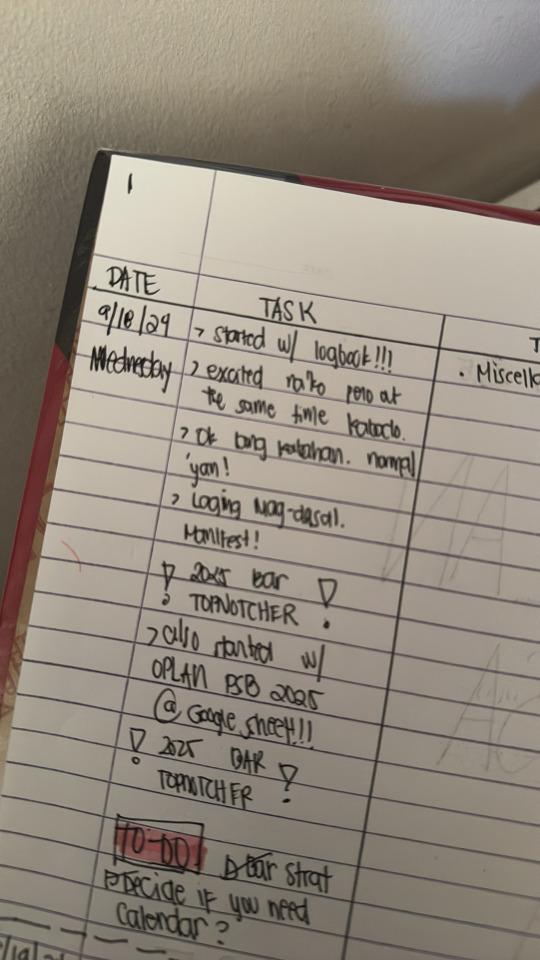 1
DATE
TASK
9/18/24
Wednesday
> started w/ logbook!!!
• Miscell
> excited na'ko pero at
the same time kabado.
> Ok lang kabahan. normal
'yan!
> Laging mag-dasal.
Manifest!
! 2025 Bar !
TOPNOTCHER
> also started w/
OPLAN PSB 2025
@ Google sheet!!!
! 2025 BAR !
TOPNOTCHER
TO-DO
Bar strat
Decide if you need
Calendar?